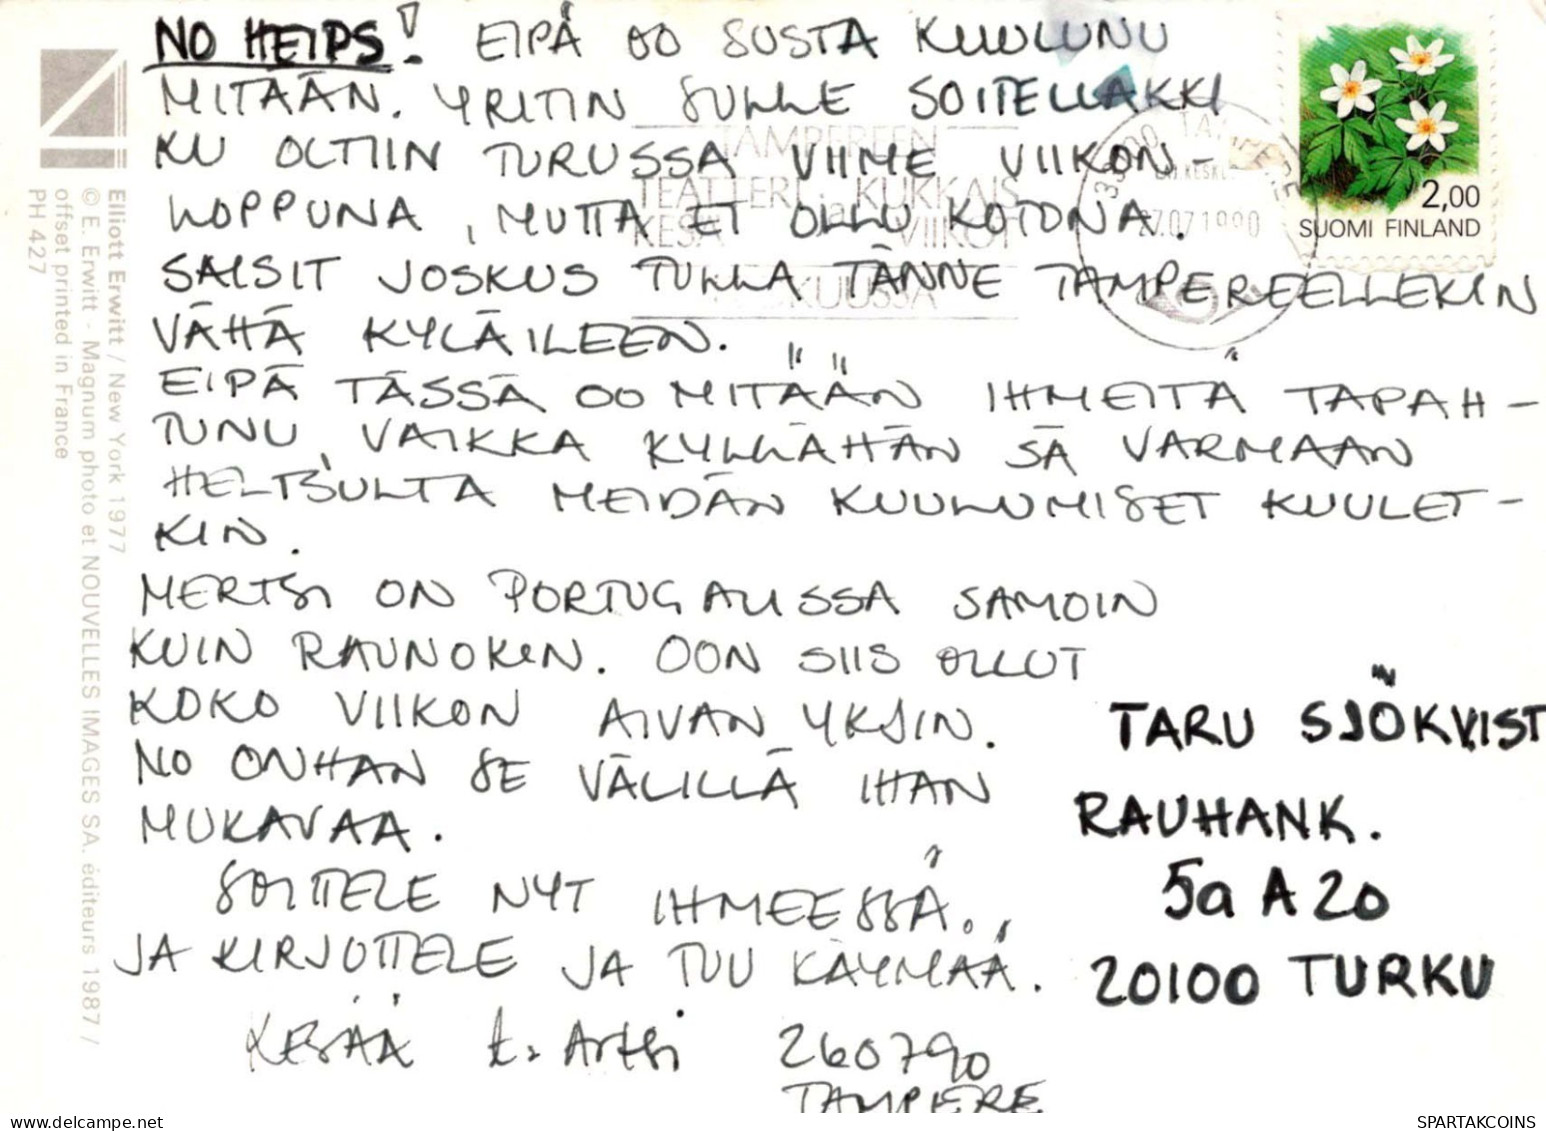 NO HEIPS! EIPÄ OO SUSTA KUULUNU
MITÄÄN. YRITIN SULLE SOITELLAKKI
KU OLTIIN TURUSSA VIIME VIIKON-
LOPPUNA, MUTTA ET OLLU KOTONA.
SAISIT JOSKUS TULLA TÄNNE TAMPEREELLEKIN
VÄHÄ KYLÄILEEN.
EIPÄ TÄSSÄ OO MITÄÄN IHMEITÄ TAPAH-
TUNU, VAIKKA KYLLÄHÄN SÄ VARMAAN
HELTSULTA MEIDÄN KUULUMISET KUULET-
KIN.
MERTSI ON PORTUGALISSA SAMOIN
KUIN RAUNOKIN. OON SIIS OLLUT
KOKO VIIKON AIVAN YKSIN.
NO ONHAN SE VÄLILLÄ IHAN
MUKAVAA.
SOITTELE NYT IHMEESSÄ.
JA KIRJOTTELE JA TUU KÄYMÄÄ.
KESÄÄ t. Artsi 260790
TAMPERE
TARU SJÖKVIST
RAUHANK.
5a A 20
20100 TURKU
2,00
SUOMI FINLAND
TAMPEREEN
TEATTERI ja KUKKAIS
KESÄ VIIKOT
KUUSSA
TAMPERE
27.07.1990
Elliott Erwitt / New York 1977
© E. Erwitt - Magnum photo et NOUVELLES IMAGES SA. éditeurs 1987 /
offset printed in France
PH 427
www.delcampe.net
SPARTAKCOINS